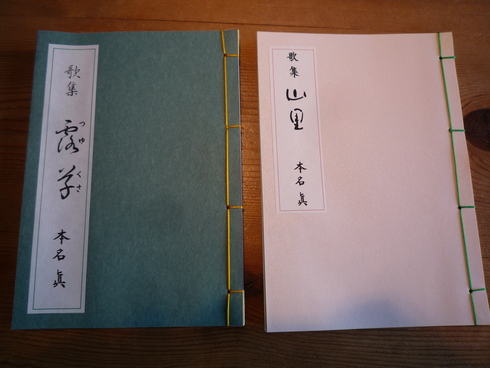 歌集
露草
つゆくさ
本名眞
歌集
山里
本名眞